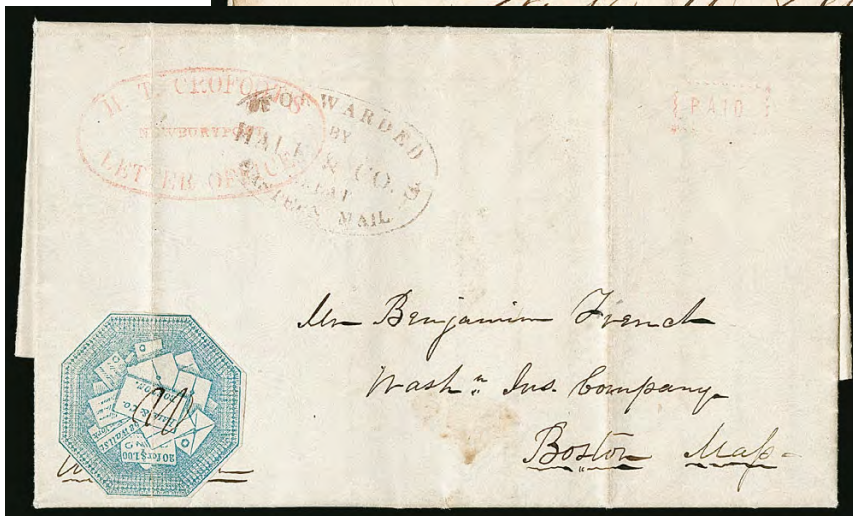 H. T. CROFOOT'S
NEWBURYPORT
LETTER OFFICE
FORWARDED
BY
HALE & CO.'S
GREAT
EASTERN MAIL
PAID
Mr Benjamin French
Washⁿ Ins. Company
Boston Maſs
Hale & Co.
Boston.
20 for $1.00